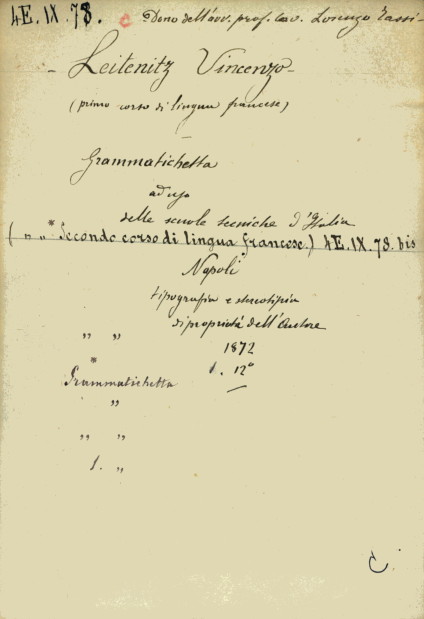 4E. IX. 78. c Dono dell'avv. prof. cav. Lorenzo Tassi-
- Leitenitz Vincenzo -
(primo corso di lingua francese)
Grammatichetta
ad uso
delle scuole tecniche d'Italia
( „ „ * Secondo corso di lingua francese.) 4E. IX. 78. bis
Napoli
tipografia e stereotipia
di proprietà dell'Autore
„ „ 1872
* 1. 12°
Grammatichetta
„
„ „
1. „
C.